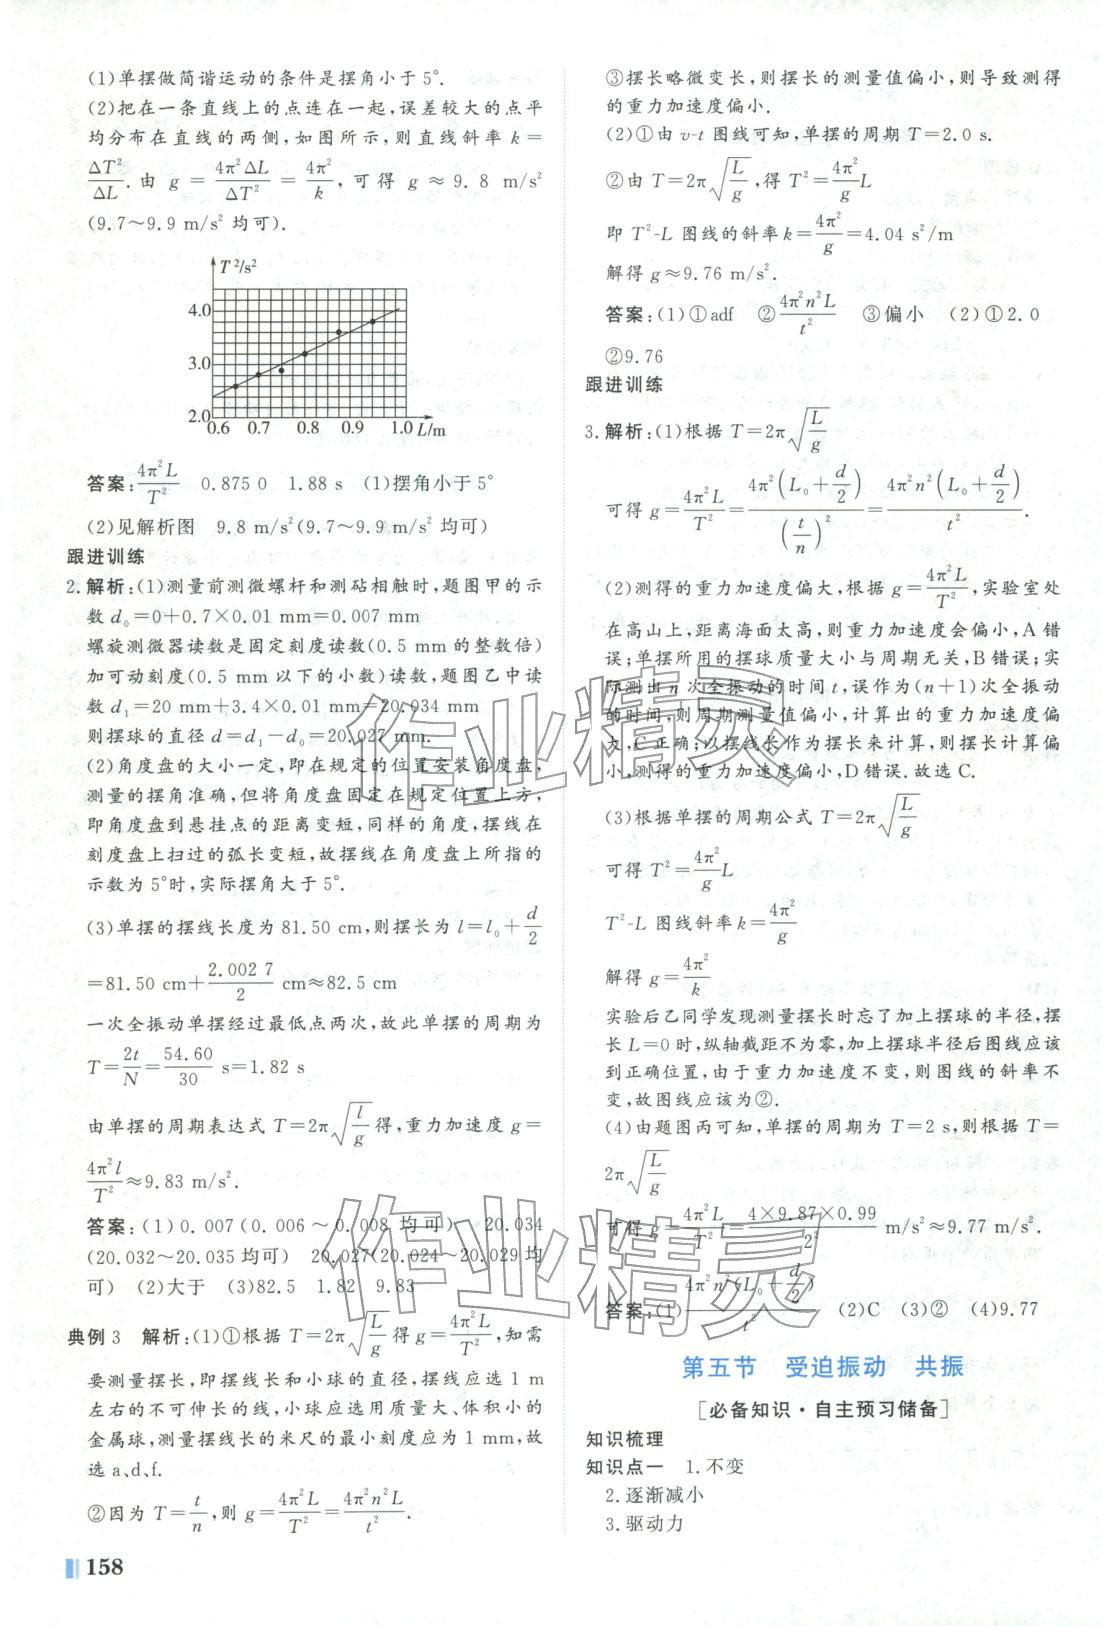 (1)单摆做简谐运动的条件是摆角小于5°.
(2)把在一条直线上的点连在一起,误差较大的点平
均分布在直线的两侧,如图所示,则直线斜率 k=
ΔT²/ΔL.由 g=4π²ΔL/ΔT²=4π²/k,可得 g≈9.8 m/s²
(9.7~9.9 m/s² 均可).
T²/s²
4.0
3.0
2.0
0.6 0.7 0.8 0.9 1.0 L/m
答案:4π²L/T² 0.875 0 1.88 s (1)摆角小于5°
(2)见解析图 9.8 m/s²(9.7~9.9 m/s² 均可)
跟进训练
2.解析:(1)测量前测微螺杆和测砧相触时,题图甲的示
数 d₀=0+0.7×0.01 mm=0.007 mm
螺旋测微器读数是固定刻度读数(0.5 mm 的整数倍)
加可动刻度(0.5 mm 以下的小数)读数,题图乙中读
数 d₁=20 mm+3.4×0.01 mm=20.034 mm
则摆球的直径 d=d₁-d₀=20.027 mm.
(2)角度盘的大小一定,即在规定的位置安装角度盘,
测量的摆角准确,但将角度盘固定在规定位置上方,
即角度盘到悬挂点的距离变短,同样的角度,摆线在
刻度盘上扫过的弧长变短,故摆线在角度盘上所指的
示数为5°时,实际摆角大于5°.
(3)单摆的摆线长度为 81.50 cm,则摆长为 l=l₀+d/2
=81.50 cm+2.002 7/2 cm≈82.5 cm
一次全振动单摆经过最低点两次,故此单摆的周期为
T=2t/N=54.60/30 s=1.82 s
由单摆的周期表达式 T=2π√(l/g)得,重力加速度 g=
4π²l/T²≈9.83 m/s².
答案:(1)0.007(0.006~0.008 均可) 20.034
(20.032~20.035均可) 20.027(20.024~20.029均
可) (2)大于 (3)82.5 1.82 9.83
典例 3 解析:(1)①根据 T=2π√(L/g)得 g=4π²L/T²,知需
要测量摆长,即摆线长和小球的直径,摆线应选 1 m
左右的不可伸长的线,小球应选用质量大、体积小的
金属球,测量摆线长的米尺的最小刻度应为 1 mm,故
选 a、d、f.
②因为 T=t/n,则 g=4π²L/T²=4π²n²L/t².
158
③摆长略微变长,则摆长的测量值偏小,则导致测得
的重力加速度偏小.
(2)①由 v-t 图线可知,单摆的周期 T=2.0 s.
②由 T=2π√(L/g),得 T²=4π²/g L
即 T²-L 图线的斜率 k=4π²/g=4.04 s²/m
解得 g≈9.76 m/s².
答案:(1)①adf ②4π²n²L/t² ③偏小 (2)①2.0
②9.76
跟进训练
3.解析:(1)根据 T=2π√(L/g)
可得 g=4π²L/T²=4π²(L₀+d/2)/(t/n)²=4π²n²(L₀+d/2)/t².
(2)测得的重力加速度偏大,根据 g=4π²L/T²,实验室处
在高山上,距离海面太高,则重力加速度会偏小,A 错
误;单摆所用的摆球质量大小与周期无关,B 错误;实
际测出 n 次全振动的时间 t,误作为(n+1)次全振动
的时间,则周期测量值偏小,计算出的重力加速度偏
大,C 正确;以摆线长作为摆长来计算,则摆长计算偏
小,测得的重力加速度偏小,D 错误.故选 C.
(3)根据单摆的周期公式 T=2π√(L/g)
可得 T²=4π²/g L
T²-L 图线斜率 k=4π²/g
解得 g=4π²/k
实验后乙同学发现测量摆长时忘了加上摆球的半径,摆
长 L=0 时,纵轴截距不为零,加上摆球半径后图线应该
到正确位置,由于重力加速度不变,则图线的斜率不
变,故图线应该为②.
(4)由题图丙可知,单摆的周期为 T=2 s,则根据 T=
2π√(L/g)
可得 g=4π²L/T²=4×9.87×0.99/2² m/s²≈9.77 m/s².
答案:(1)4π²n²(L₀+d/2)/t² (2)C (3)② (4)9.77
第五节 受迫振动 共振
[必备知识·自主预习储备]
知识梳理
知识点一 1.不变
2.逐渐减小
3.驱动力
作业精灵
作业精灵